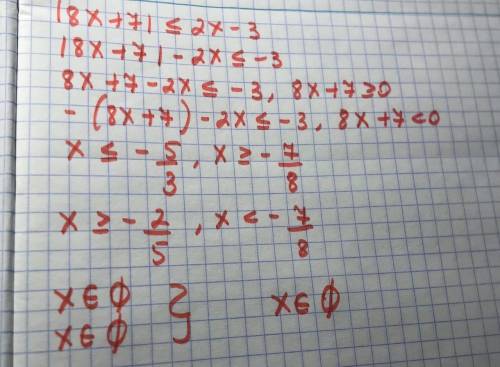 |8x+7| ≤ 2x-3
|8x+7| - 2x ≤ -3
8x+7-2x ≤ -3, 8x+7≥0
-(8x+7)-2x ≤ -3, 8x+7<0
x ≤ -5/3, x ≥ -7/8
x ≥ -2/5, x < -7/8
x∈∅
x∈∅ } x∈∅